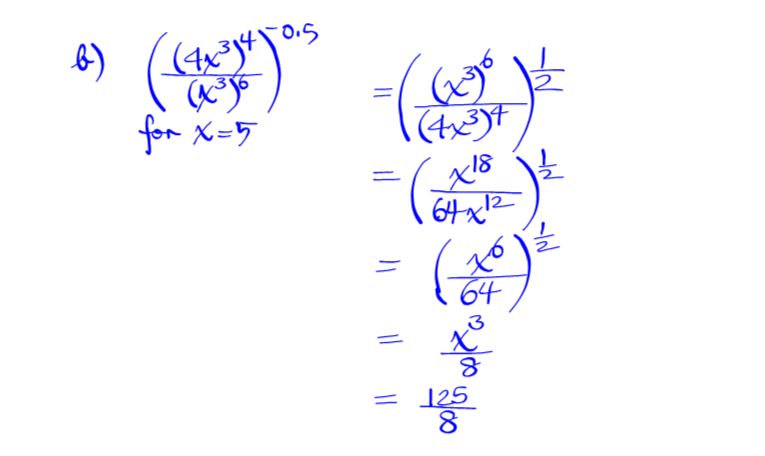 b) ((4x³)⁴/(x³)⁶)^-0.5
for x=5
= ((x³)⁶/(4x³)⁴)^(1/2)
= (x¹⁸/64x¹²)^(1/2)
= (x⁶/64)^(1/2)
= x³/8
= 125/8